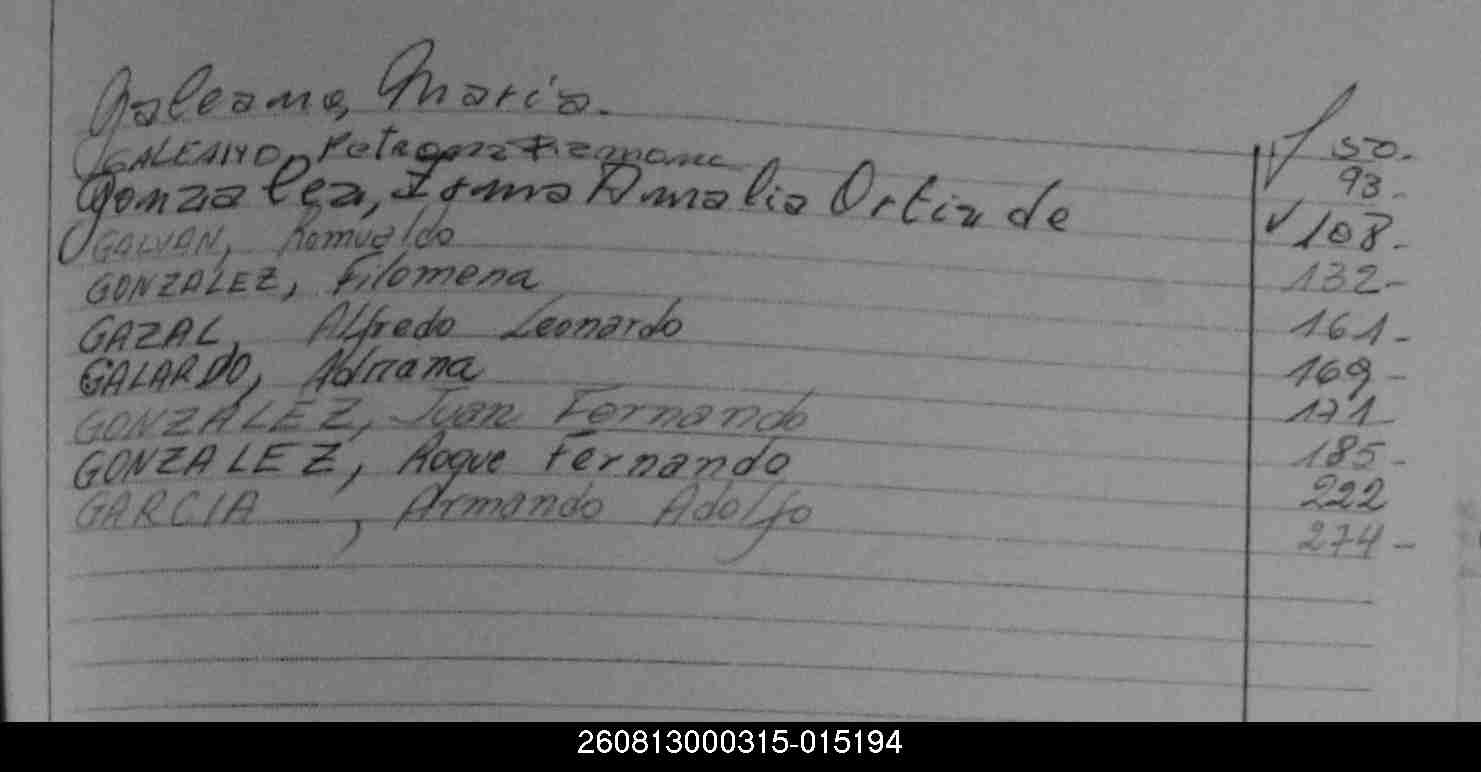 Galeano, Maria. 50.-
GALEANO, Petrona 93.-
Gonzalez, Irma Amalia Ortiz de ✓ 108.-
GALVAN, Romualdo 132-
GONZALEZ, Filomena 161-
GAZAL, Alfredo Leonardo 169-
GALARDO, Adriana 171
GONZALEZ, Juan Fernando 185-
GONZALEZ, Roque Fernando 222
GARCIA, Armando Adolfo 274-
260813000315-015194